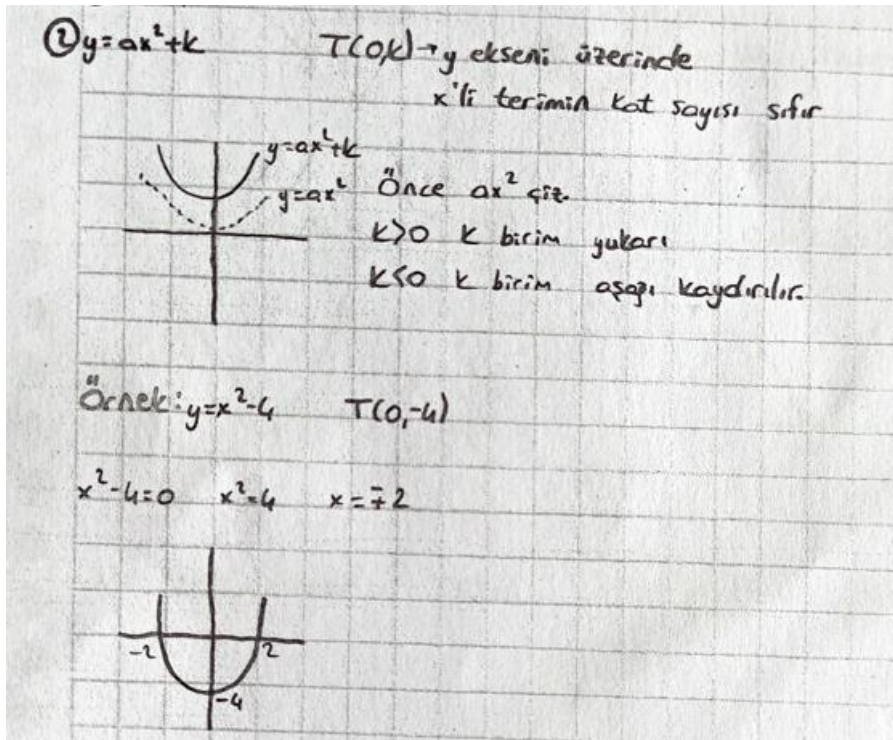 ② y=ax²+k T(0,k)→y ekseni üzerinde
x'li terimin kat sayısı sıfır
y=ax²+k
y=ax² Önce ax² çiz.
k>0 k birim yukarı
k<0 k birim aşağı kaydırılır.
Örnek: y=x²-4 T(0,-4)
x²-4=0 x²=4 x=∓2
-2 2
-4